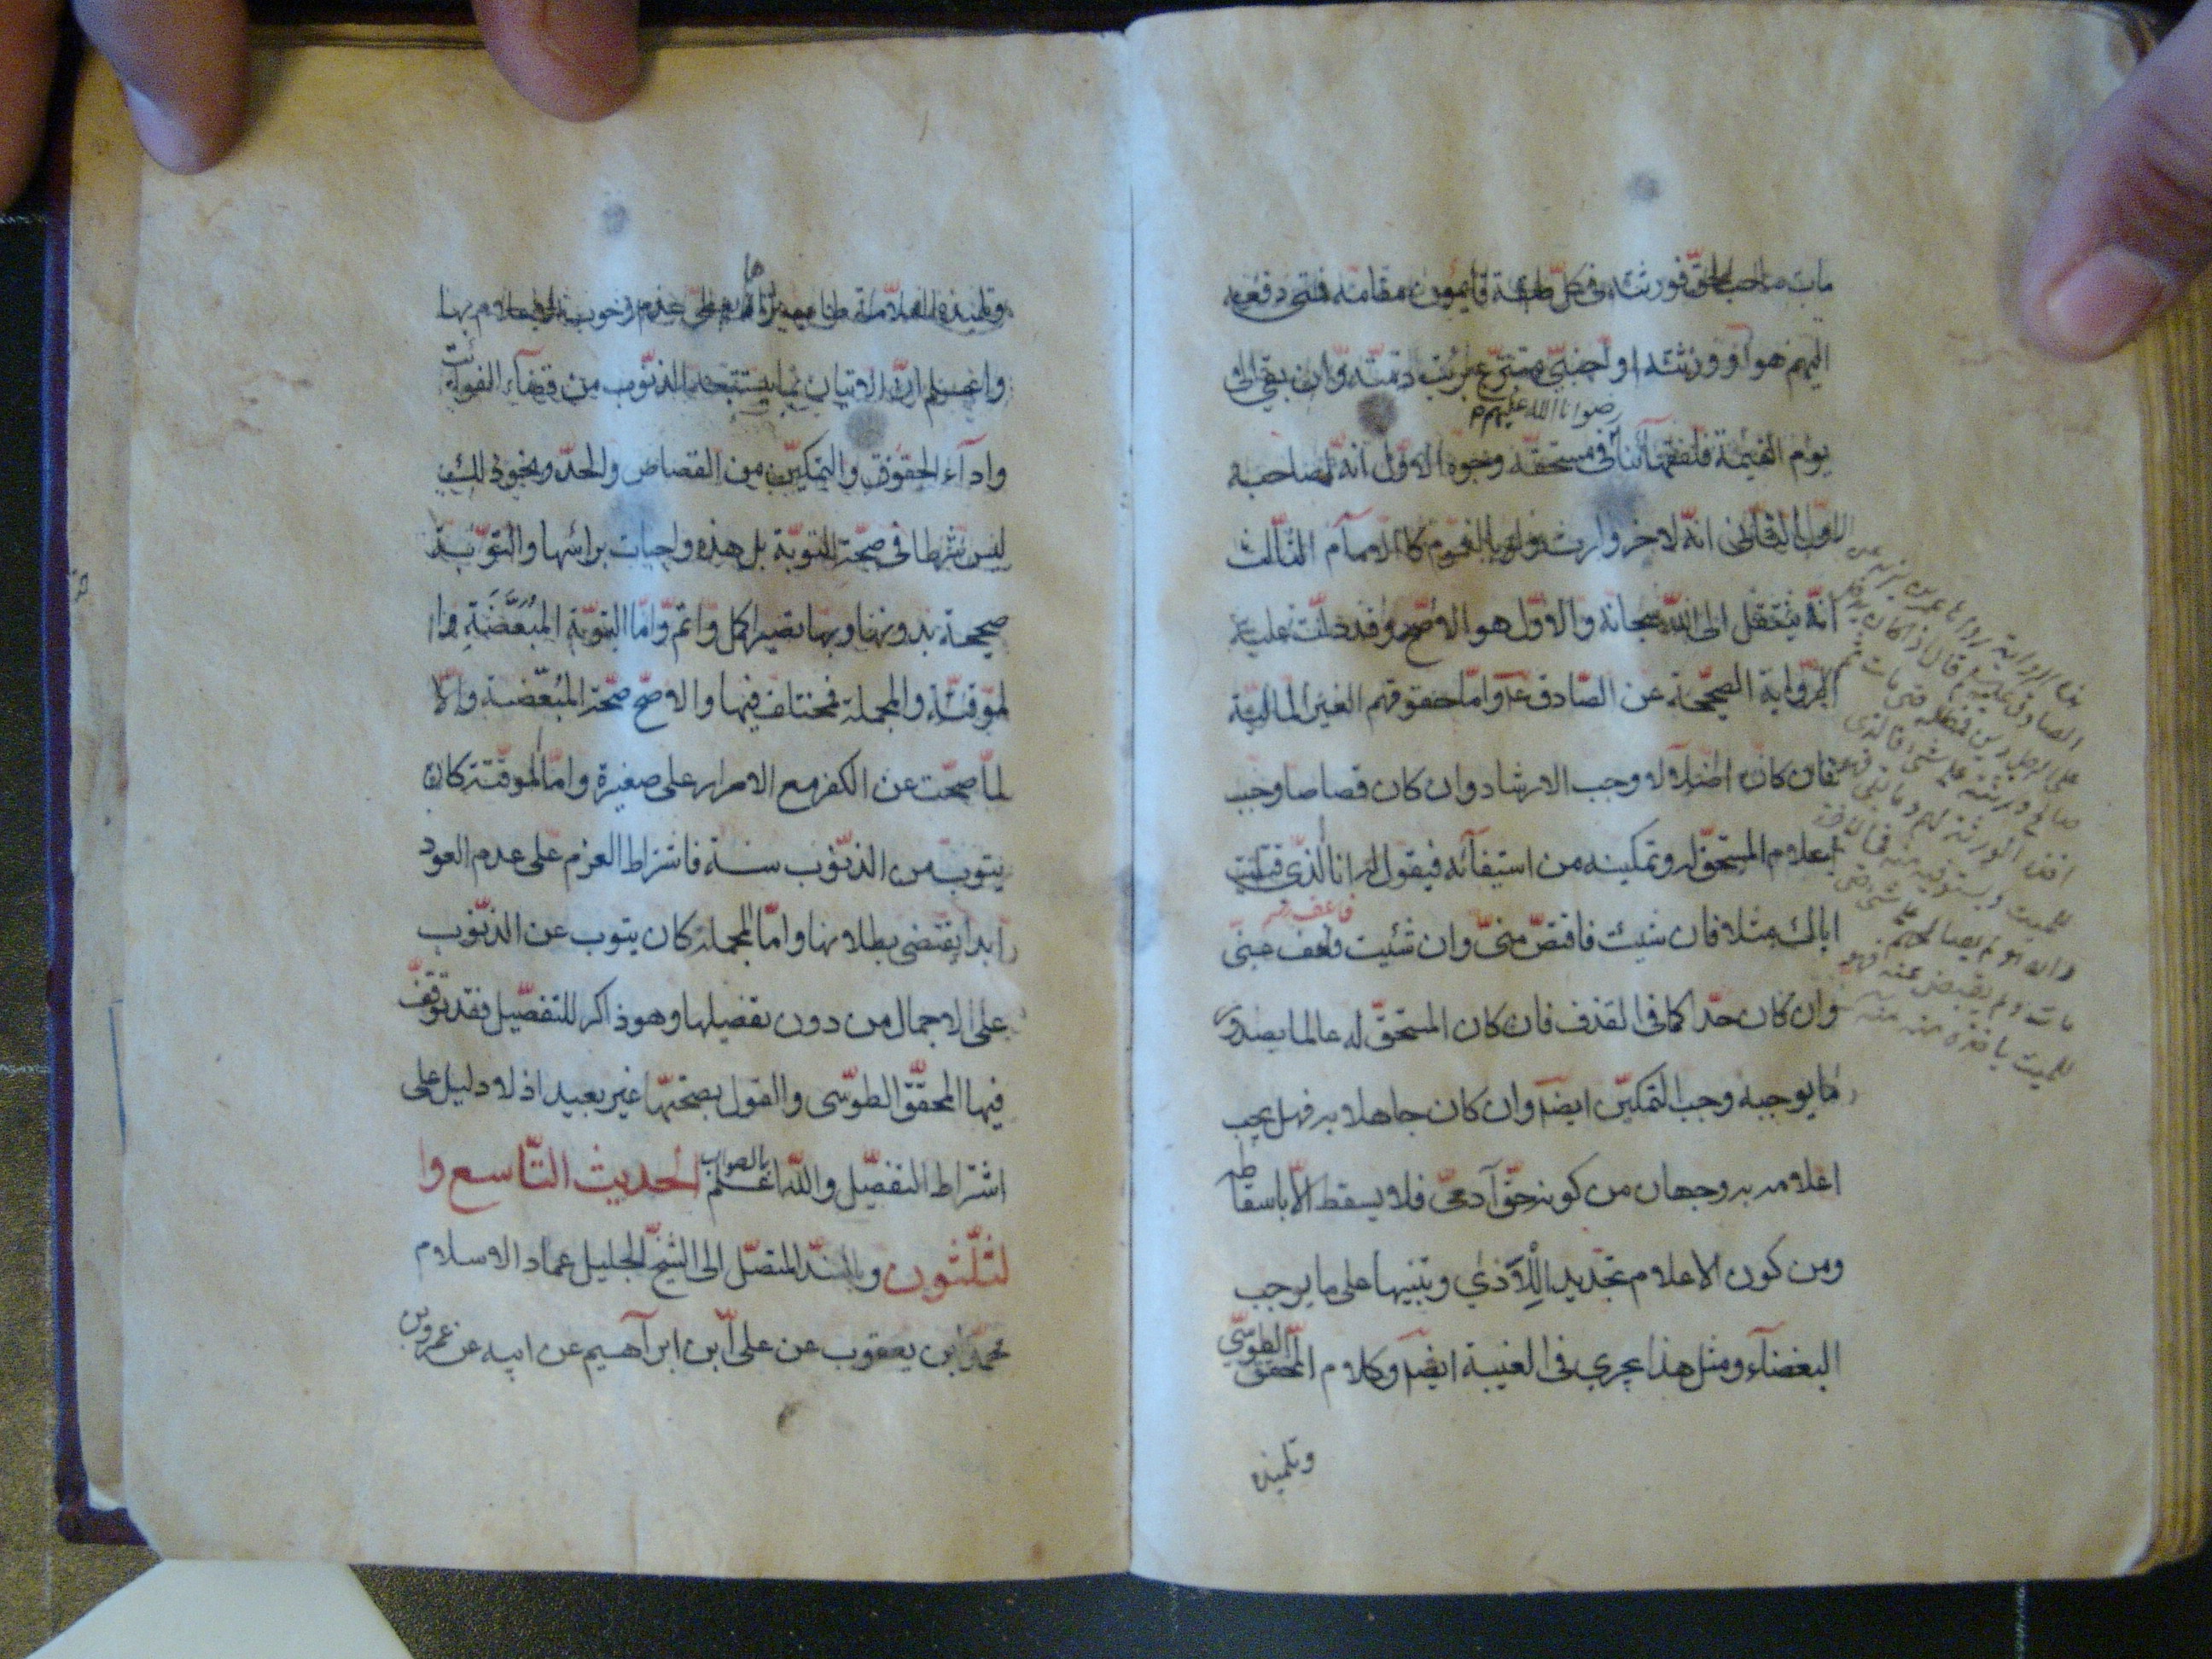 مات صاحب الحق فورثته فى كل طبقة قايمون مقامه فمتى دفعه
اليهم هو او ورثته او اجنبىّ متبرّع برئت ذمّته وان بقى الى
رضوان الله عليهم
يوم القيمة فلفقهآئنا فى مستحقه وجوه الاوّل انه لصاحبه
الاول الثانى انه لاخر وارث ولو بالعموم كالامام الثالث
انه ينتقل الى الله سبحانه والاول هو الاصح وقد دلّت عليه
الرّواية الصحيحة عن الصّادق عم وامّا حقوقهم الغير الماليّة
فان كان اضلالا وجب الارشاد وان كان قصاصا وجب
اعلام المستحقّ له وتمكينه من استيفآئه فيقول له انا الذى قتلت
اباك مثلا فان شئت فاقتصّ منىّ وان شئت فاعف عنىّ
وان كان حدّا كما فى القذف فان كان المستحقّ له عالما بصدور
ما يوجبه وجب التمكين ايضا وان كان جاهلا به فهل يجب
اعلامه به وجهان من كونه حقّ آدمىّ فلا يسقط الّا باسقاطه
ومن كون الاعلام تجديدا للاذي وتنبيها على ما يوجب
البغضآء ومثل هذا يجري فى الغيبة ايضا وكلام المحقق الطوسّى
وتلميذه
هذه الرواية رواها عمر بن يزيد عن
الصادق عليه السلام قال اذا كان
على الرجل دين فمطله حتى مات ثم
صالح ورثته على شىء فالذى
اخذ الورثة لهم وما بقى فهو
للميت يستوفيه منه فى الاخرة
وان هو لم يصالحهم على شىء حتى
مات ولم يقبض عنه فهو
للميت ياخذه منه
وتلميذه العلامة طاب ثراهما يعطى عدم وجوب الاعلام بها
واعلم ان الاتيان بما يستتبعه الذنوب من قضآء الفوائت
وادآء الحقوق والتمكين من القصاص والحدّ ونحو ذلك
ليس شرطا فى صحّة التوبة بل هذه واجبات براسها والتوبة
صحيحة بدونها وبها تصير اكمل واتم وامّا التوبة المبعّضة وا
لموقتة والمجملة فمختلف فيها والاصحّ صحّة المبعّضة والّا
لما صحّت عن الكفر مع الاصرار على صغيرة وامّا الموقّتة كان
يتوب من الذنوب سنة فاشتراط العزم على عدم العود
ابدا يقتضى بطلانها وامّا المجملة كان يتوب عن الذنوب
على الاجمال من دون تفصيلها وهو ذاكر للتفصيل فقد توقّف
فيها المحقّق الطوسّى والقول بصحّتها غير بعيد اذ لا دليل على
اشتراط التفصيل والله اعلم بالصواب الحديث التّاسع وا
لثّلثون وبالسند المتصّل الى الشيخ الجليل عماد الاسلام
محمّد بن يعقوب عن علىّ بن ابرآهيم عن ابيه عن عمرو بن